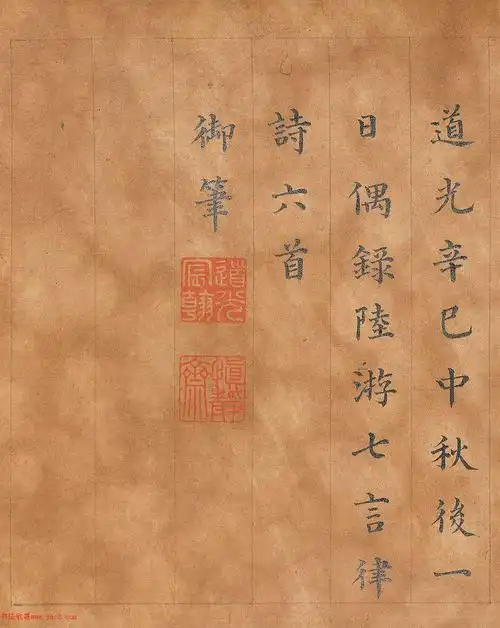 道光辛巳中秋後一
日偶錄陸游七言律
詩六首
御筆
道光宸翰